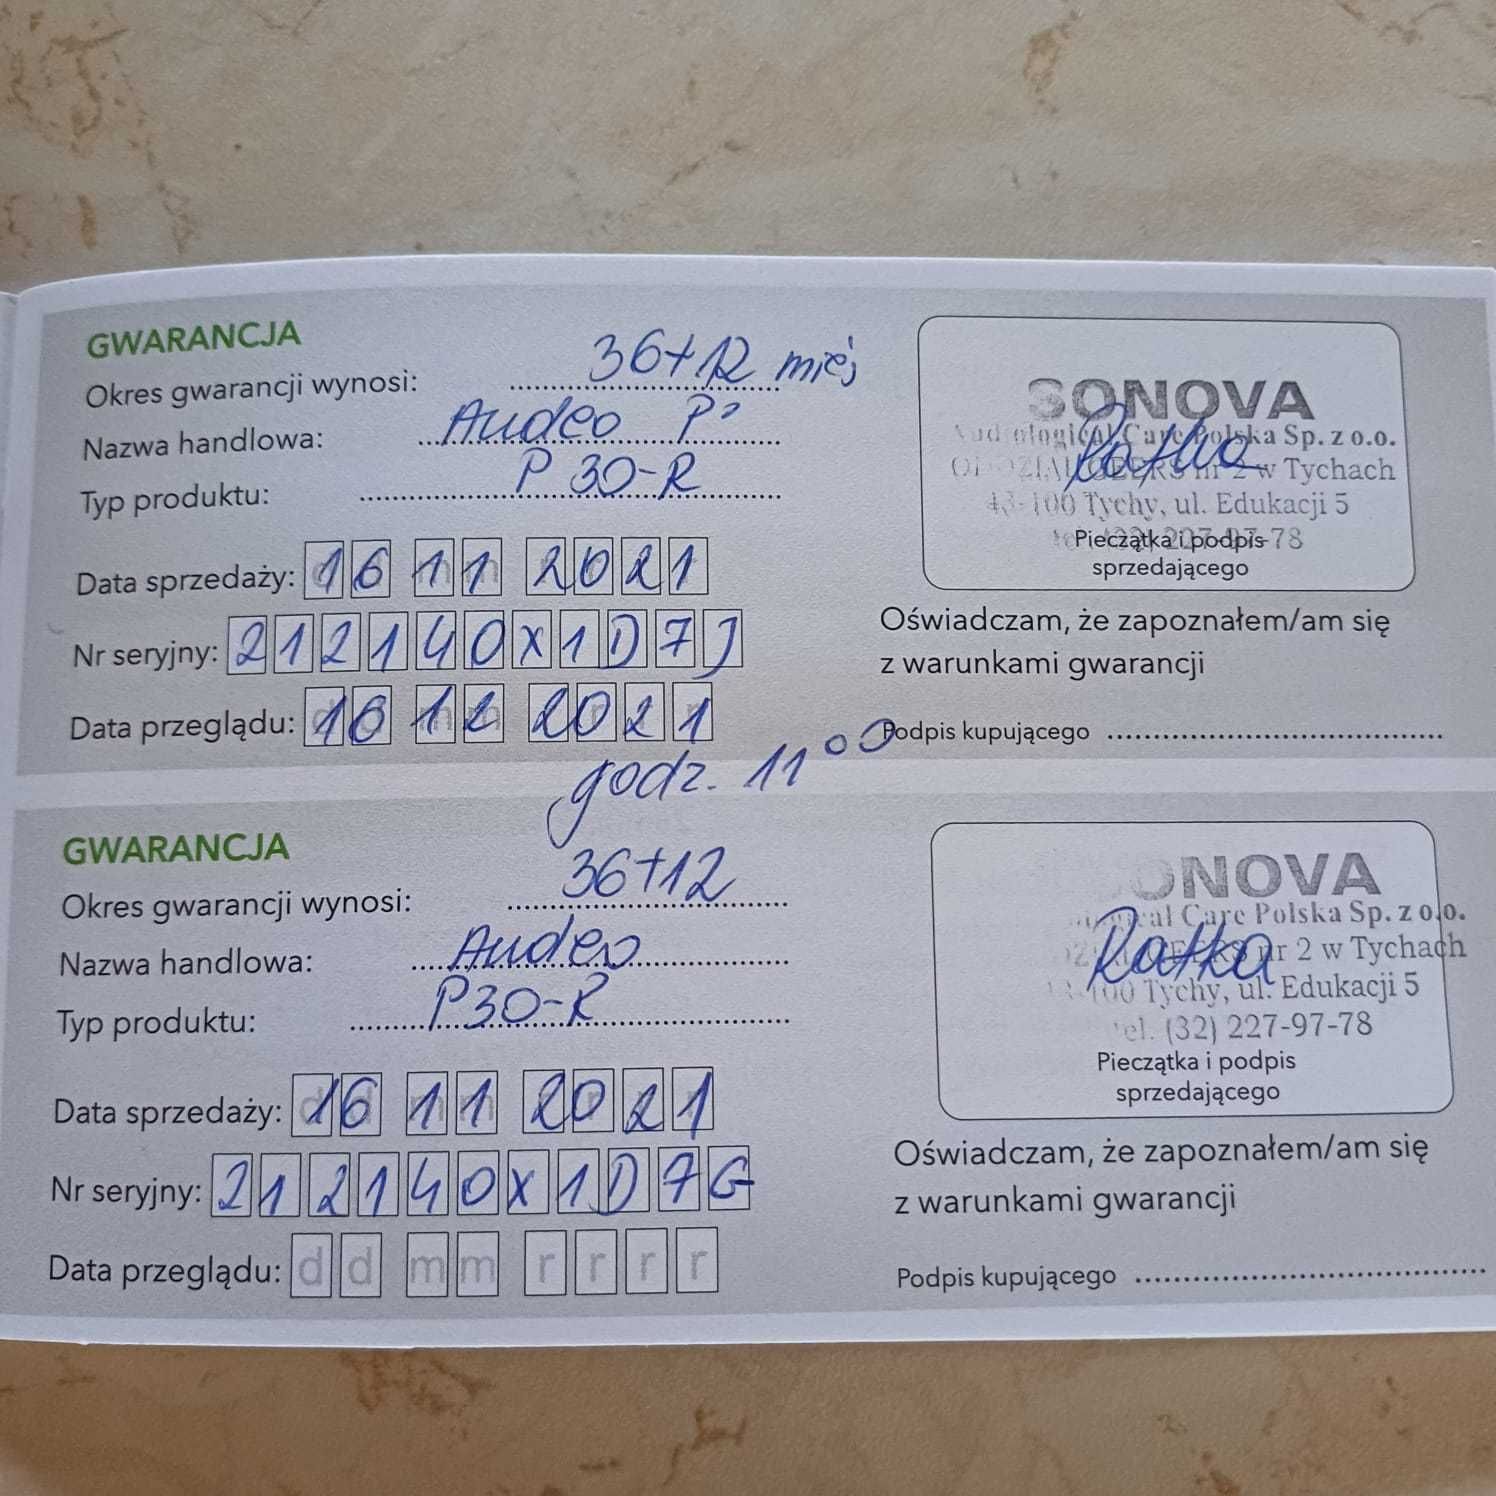 GWARANCJA
Okres gwarancji wynosi: 36+12 mieś
Nazwa handlowa: Audeo P
Typ produktu: P 30-R
Data sprzedaży: 16 11 2021
Nr seryjny: 212140X1D7J
Data przeglądu: 16 12 2021
godz. 11 00
SONOVA
Audiological Care Polska Sp. z o.o.
ODDZIAŁ GEERS nr 2 w Tychach
43-100 Tychy, ul. Edukacji 5
tel. (32) 227-97-78
Pieczątka i podpis
sprzedającego
Oświadczam, że zapoznałem/am się
z warunkami gwarancji
Podpis kupującego
GWARANCJA
Okres gwarancji wynosi: 36+12
Nazwa handlowa: Audeo
Typ produktu: P30-R
Data sprzedaży: 16 11 2021
Nr seryjny: 212140X1D7G
Data przeglądu: d d m m r r r r
ONOVA
Care Polska Sp. z o.o.
nr 2 w Tychach
43-100 Tychy, ul. Edukacji 5
tel. (32) 227-97-78
Pieczątka i podpis
sprzedającego
Oświadczam, że zapoznałem/am się
z warunkami gwarancji
Podpis kupującego